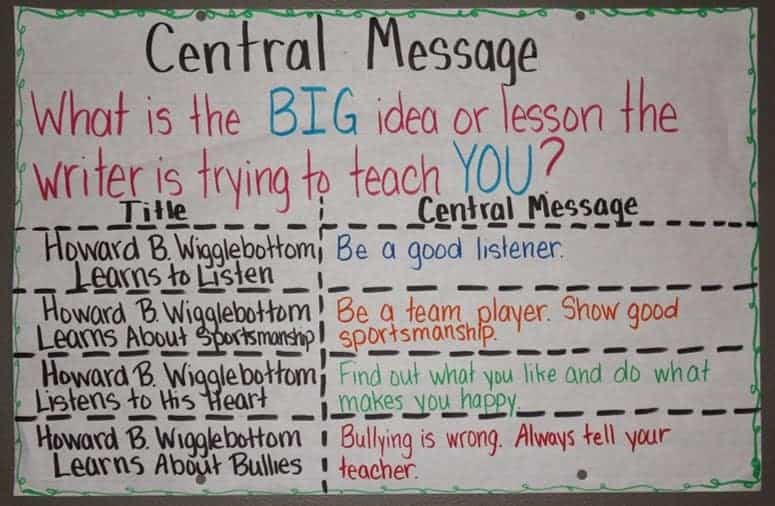 Central Message
What is the BIG idea or lesson the
writer is trying to teach YOU?
Title Central Message
Howard B. Wigglebottom Be a good listener.
Learns to Listen
Howard B. Wigglebottom Be a team player. Show good
Learns About Sportsmanship sportsmanship.
Howard B. Wigglebottom Find out what you like and do what
Listens to His Heart makes you happy.
Howard B. Wigglebottom Bullying is wrong. Always tell your
Learns About Bullies teacher.